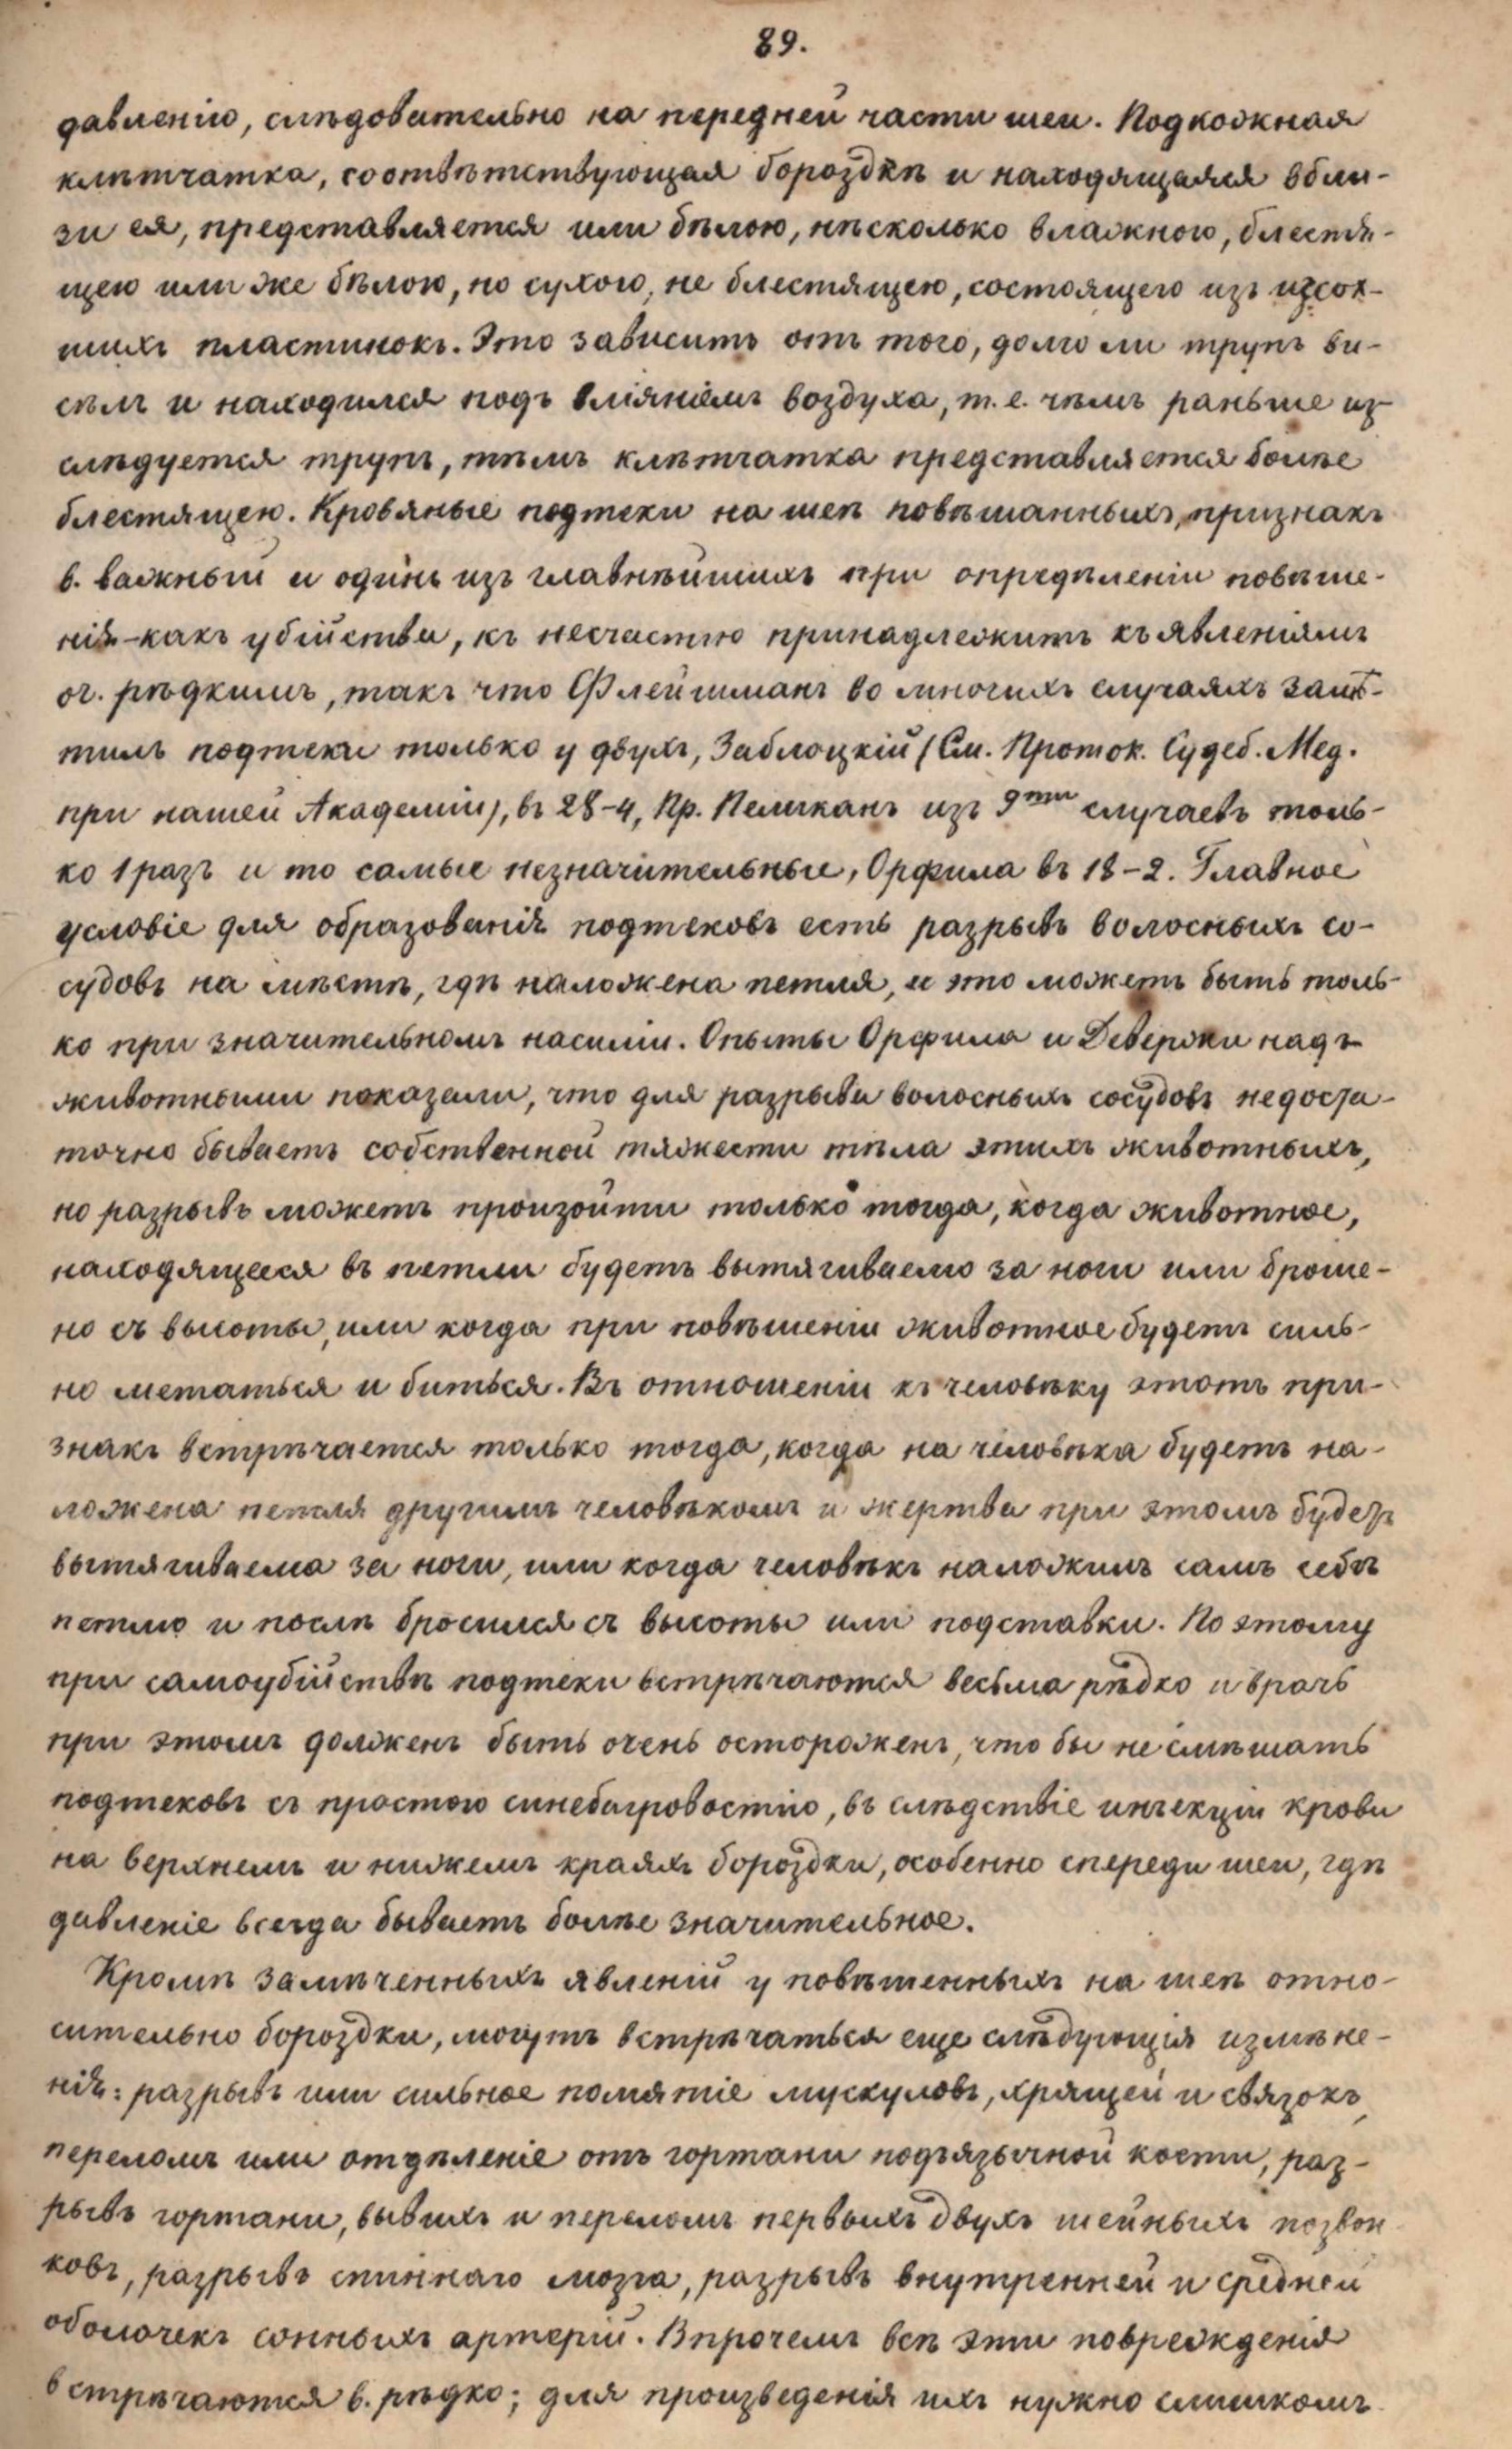 89.
давленію, слѣдовательно на передней части шеи. Подкожная
клѣтчатка, соотвѣтствующая бороздкѣ и находящаяся вбли-
зи ея, представляется или бѣлою, нѣсколько влажною, блестя-
щею или же бѣлою, но сухою, не блестящею, состоящею изъ изсох-
шихъ пластинокъ. Это зависитъ отъ того, долго ли трупъ ви-
сѣлъ и находился подъ вліяніемъ воздуха, т. е. чѣмъ раньше из-
слѣдуется трупъ, тѣмъ клѣтчатка представляется болѣе
блестящею. Кровяные подтеки на шеѣ повѣшанныхъ, признакъ
в. важный и одинъ изъ главнѣйшихъ при опредѣленіи повѣше-
нія - какъ убійства, къ несчастію принадлежитъ къ явленіямъ
оч. рѣдкимъ, такъ что Флейшманъ во многихъ случаяхъ замѣ-
тилъ подтеки только у двухъ, Заблоцкій (См. Проток. Судеб. Мед.
при нашей Академіи), въ 28-4, Пр. Пеликанъ изъ 9ти случаевъ толь-
ко 1 разъ и то самые незначительные, Орфила въ 18-2. Главное
условіе для образованія подтековъ есть разрывъ волосныхъ со-
судовъ на мѣстѣ, гдѣ наложена петля, и это можетъ быть толь-
ко при значительномъ насиліи. Опыты Орфила и Девержи надъ
животными показали, что для разрыва волосныхъ сосудовъ недоста-
точно бываетъ собственной тяжести тѣла этихъ животныхъ,
но разрывъ можетъ произойти только тогда, когда животное,
находящееся въ петли будетъ вытягиваемо за ноги или броше-
но съ высоты, или когда при повѣшеніи животное будетъ силь-
но метаться и биться. Въ отношеніи къ человѣку этотъ при-
знакъ встрѣчается только тогда, когда на человѣка будетъ на-
ложена петля другимъ человѣкомъ и жертва при этомъ будетъ
вытягиваема за ноги, или когда человѣкъ наложилъ самъ себѣ
петлю и послѣ бросился съ высоты или подставки. По этому
при самоубійствѣ подтеки встрѣчаются весьма рѣдко и врачъ
при этомъ долженъ быть очень остороженъ, что бы не смѣшать
подтековъ съ простою синебагровостію, въ слѣдствіе инъекціи крови
на верхнемъ и нижнемъ краяхъ бороздки, особенно спереди шеи, гдѣ
давленіе всегда бываетъ болѣе значительное.
Кромѣ замѣченныхъ явленій у повѣшенныхъ на шеѣ отно-
сительно бороздки, могутъ встрѣчаться еще слѣдующія измѣне-
нія: разрывъ или сильное помятіе мускуловъ, хрящей и связокъ,
переломъ или отдѣленіе отъ гортани подъязычной кости, раз-
рывъ гортани, вывихъ и переломъ первыхъ двухъ шейныхъ позвон-
ковъ, разрывъ спиннаго мозга, разрывъ внутренней и средней
оболочекъ сонныхъ артерій. Впрочемъ всѣ эти поврежденія
встрѣчаются в. рѣдко; для произведенія ихъ нужно слишкомъ